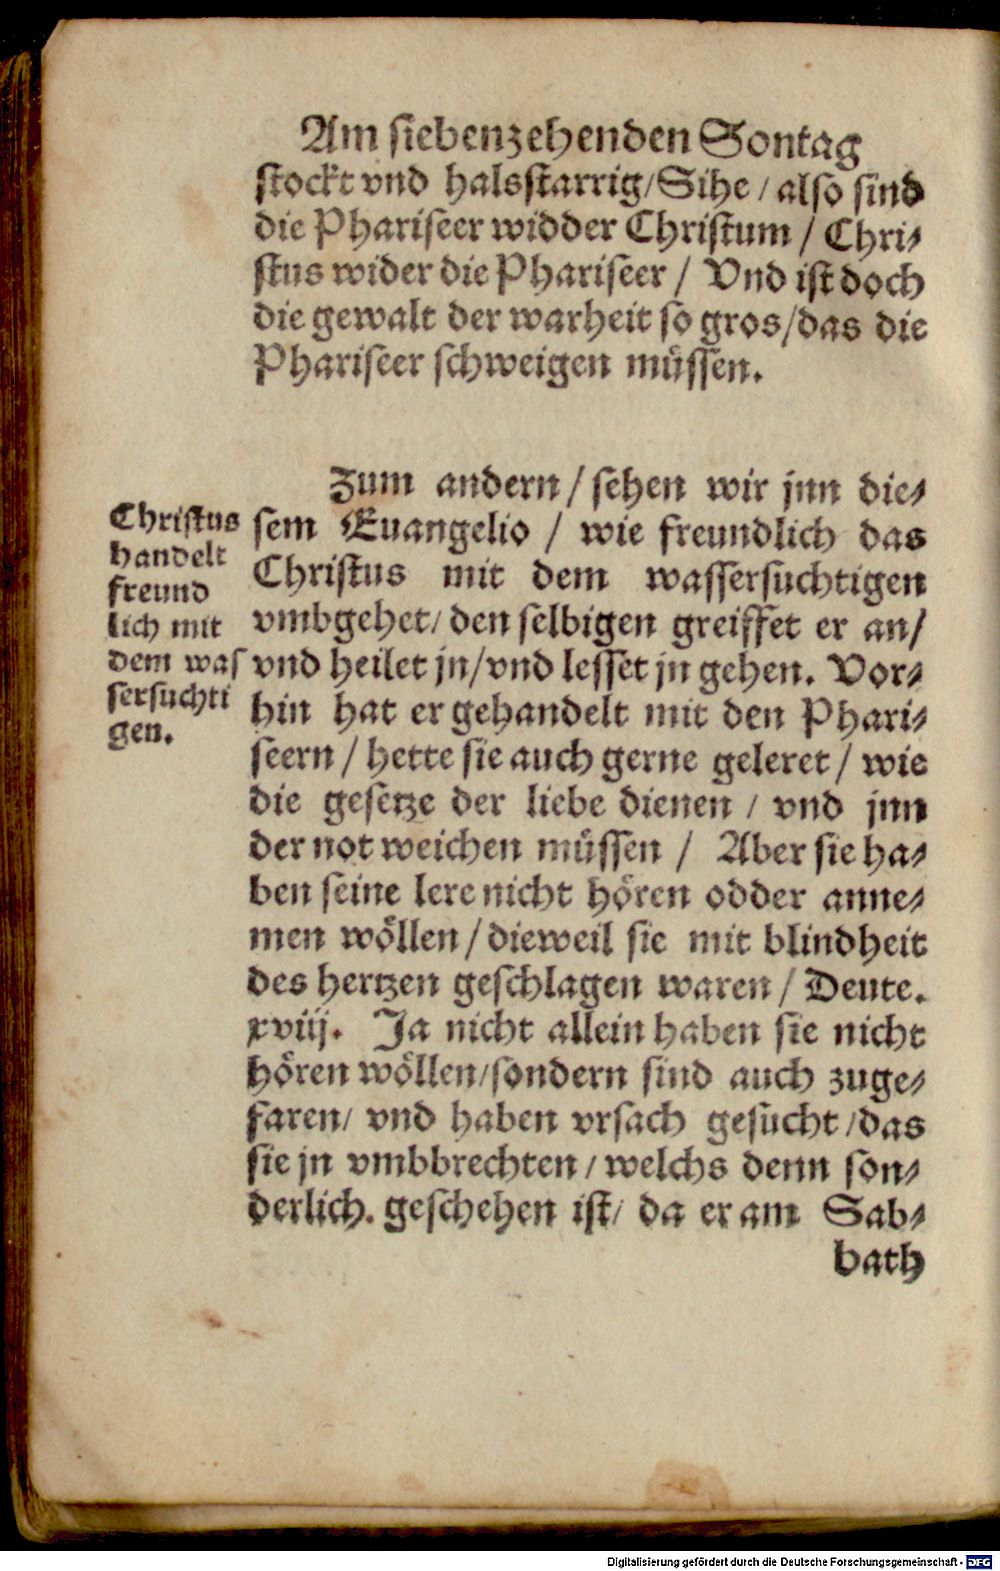 Am siebenzehenden Sontag
stockt vnd halsstarrig/Sihe/also sind
die Phariseer widder Christum/Chri-
stus wider die Phariseer/Vnd ist doch
die gewalt der warheit so gros/das die
Phariseer schweigen müssen.
Christus
handelt
freund
lich mit
dem was
sersuchti
gen.
Zum andern/sehen wir jnn die-
sem Euangelio/wie freundlich das
Christus mit dem wassersuchtigen
vmbgehet/den selbigen greiffet er an/
vnd heilet jn/vnd lesset jn gehen. Vor-
hin hat er gehandelt mit den Phari-
seern/hette sie auch gerne geleret/wie
die gesetze der liebe dienen/vnd jnn
der not weichen müssen/Aber sie ha-
ben seine lere nicht hören odder anne-
men wöllen/dieweil sie mit blindheit
des hertzen geschlagen waren/Deute.
xviij. Ja nicht allein haben sie nicht
hören wöllen/sondern sind auch zuge-
faren/vnd haben vrsach gesucht/das
sie jn vmbbrechten/welchs denn son-
derlich. geschehen ist/da er am Sab-
bath
Digitalisierung gefördert durch die Deutsche Forschungsgemeinschaft - DFG